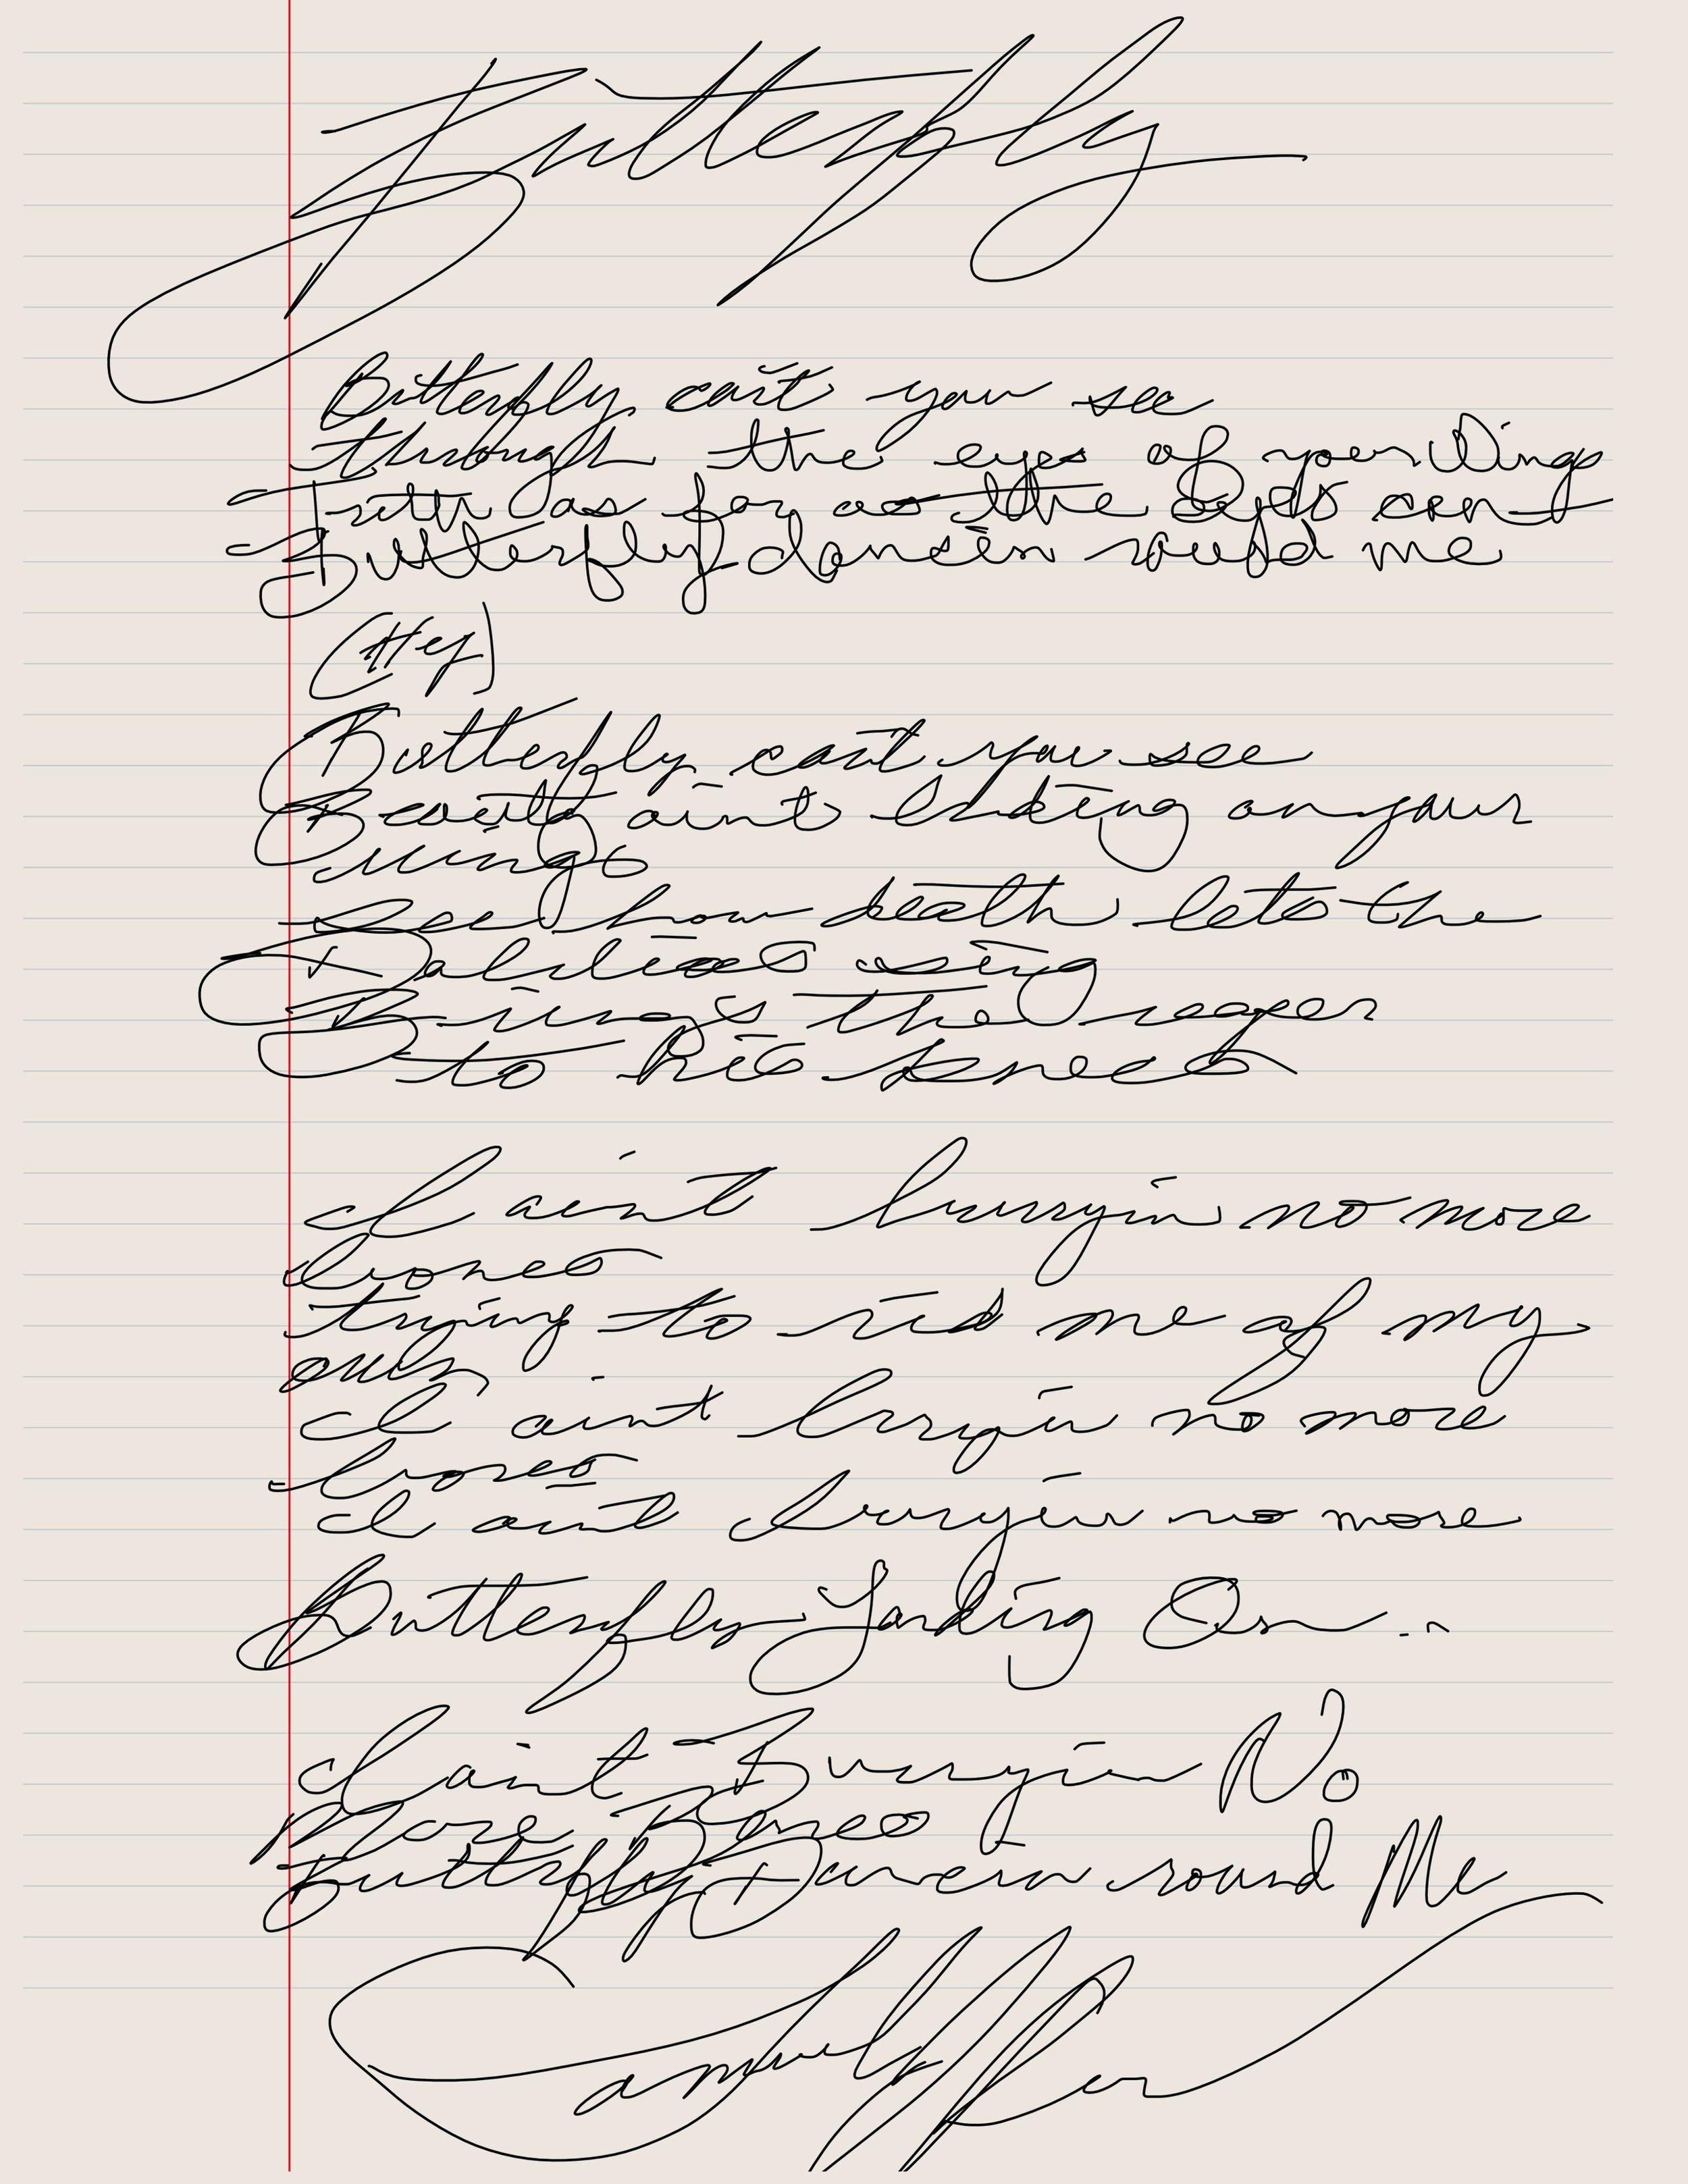 Butterfly
Butterfly can't you see
through the eyes of your Wings
Truth as far as the eyes can
Butterfly dancin round me
(Hey)
Butterfly can't you see
Beauty ain't landing on your
wings
See how death lets the
Dahlias sing
Brings the reaper
to his knees
I ain't buryin no more
bones
trying to rid me of my
own
I ain't buryin no more
bones
I ain't buryin no more
Butterfly Landing On...
I ain't Buryin No
More Bones
Butterfly Dancin round Me
Samuel